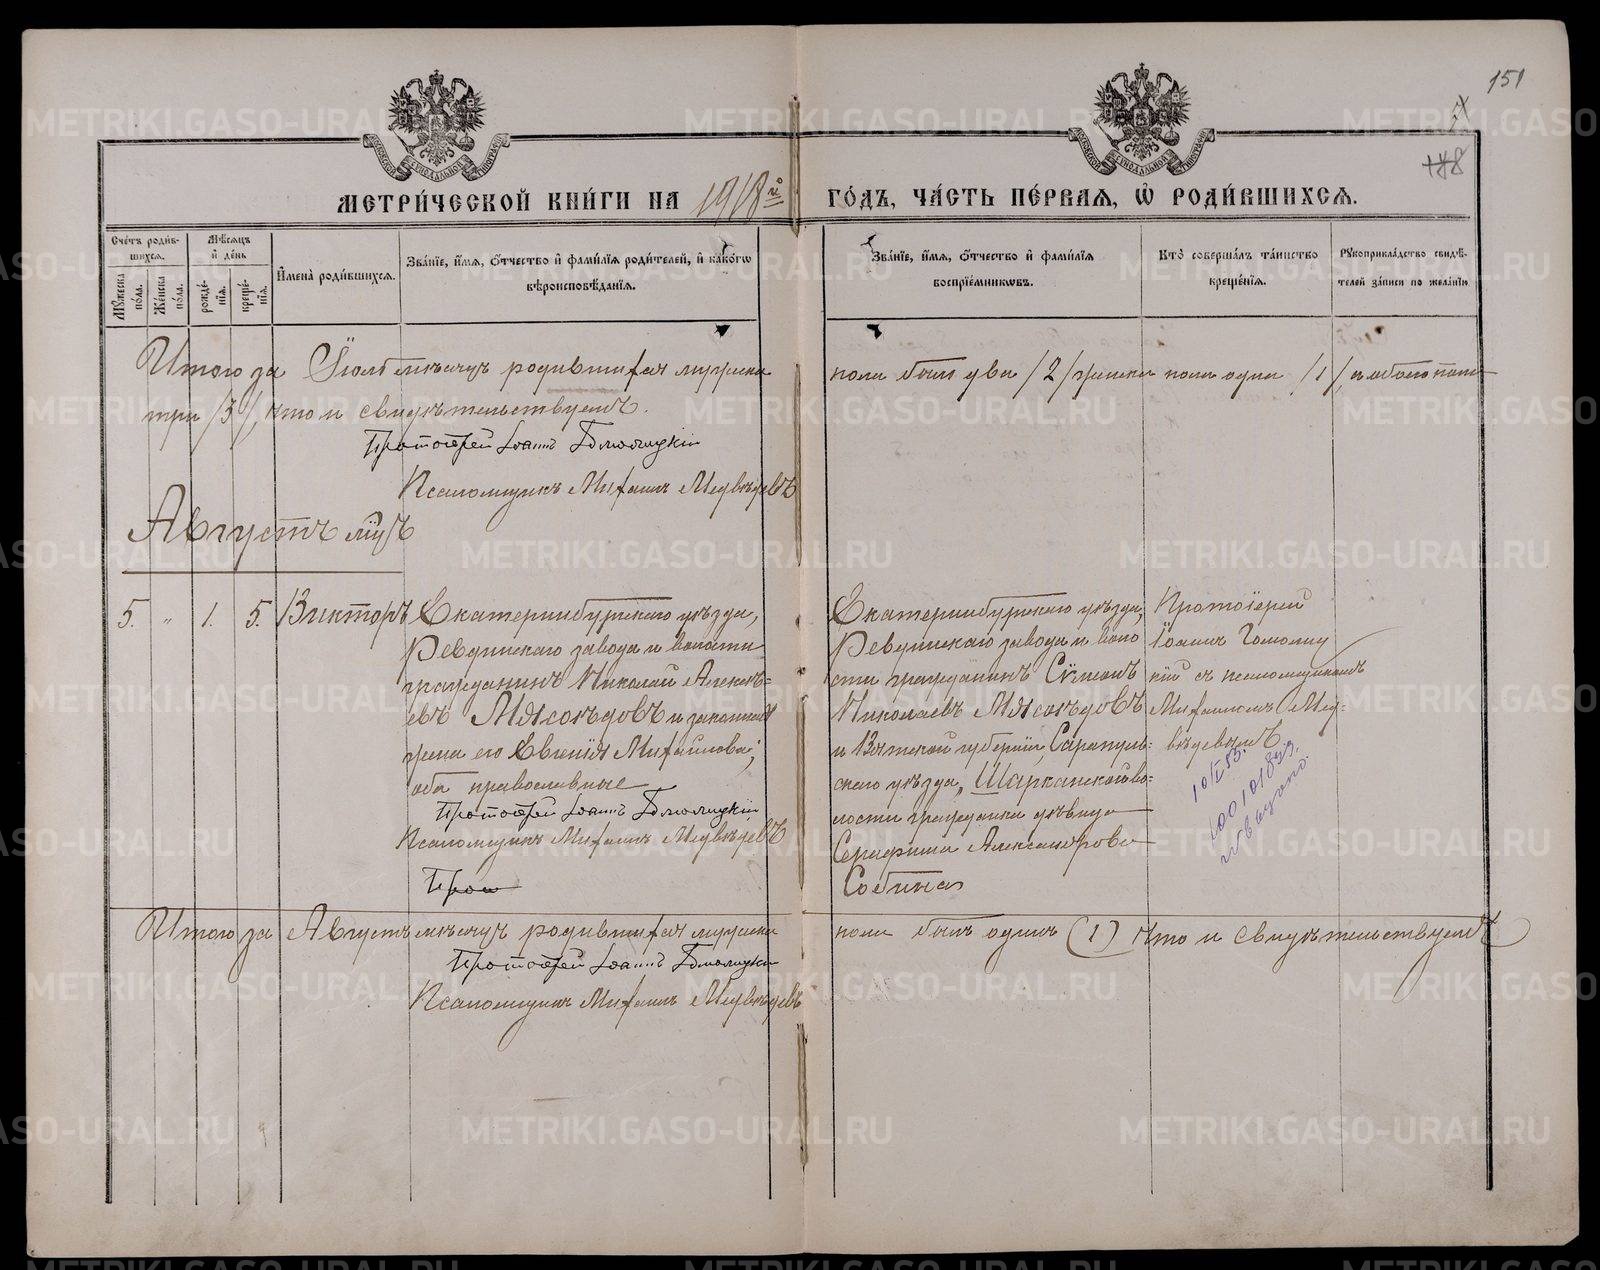 151
188
МЕТРИ́ЧЕСКОЙ КНИ́ГИ НА 1918й ГО́ДЪ, ЧА́СТЬ ПЕ́РВАЯ, Ѡ҆ РОДИ́ВШИХСЯ.
Сче́тъ роди́вшихся.
Мꙋ́жеска по́ла.
Же́нска по́ла.
Мѣ́сяцъ и҆ де́нь
рожде́нїѧ.
креще́нїѧ.
И҆мена̀ роди́вшихся.
Зва́нїе, и҆́мѧ, ѻ҆́тчество и҆ фами́лїѧ роди́телей, и҆ како́гѡ
вѣроисповѣ́данїѧ.
Зва́нїе, и҆́мѧ, ѻ҆́тчество и҆ фами́лїѧ
воспрїе́мникѡвъ.
Кто̀ соверша́лъ та́инство
креще́нїѧ.
Рꙋкоприкла́дство свидѣ́-
телей за́писи по жела́нїю.
Итого за Іюль мѣсяцъ родившихся мужска пола было два /2/, женска пола одна /1/, а обоего пола
три /3/, что и свидѣтельствуемъ.
Протоіерей Іоаннъ Гомолицкій
Псаломщикъ Михаилъ Медвѣдевъ
Августъ мцъ
5. " 1. 5. Викторъ
Екатеринбургскаго уѣзда,
Ревдинскаго завода и волости
гражданинъ Николай Алексѣ=
евъ Мясоѣдовъ и законная
жена его Евгенія Михайлова;
оба православные
Протоіерей Іоаннъ Гомолицкій
Псаломщикъ Михаилъ Медвѣдевъ
Прот
Екатеринбургскаго уѣзда,
Ревдинскаго завода и воло
сти гражданинъ Сѵмеонъ
Николаевъ Мясоѣдовъ
и Вятской губерніи, Сарапуль=
скаго уѣзда, Шарканской во=
лости гражданка дѣвица
Серафима Александрова
Собина
Протоіерей
Іоаннъ Гомолиц
кій съ псаломщикомъ
Михаиломъ Мед-
вѣдевымъ
Итого за Августъ мѣсяцъ родившихся мужска пола былъ одинъ (1) что и свидѣтельствуемъ
Протоіерей Іоаннъ Гомолицкій
Псаломщикъ Михаилъ Медвѣдевъ
METRIKI.GASO-URAL.RU